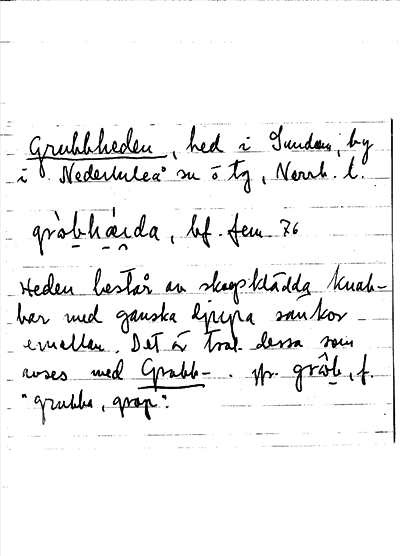 Grubbheden, hed i Sunden, by
i Nederluleå sn o tg, Norrb. l.
gròbhä́ida, bf. fem 76
Heden består av skogsklädda knab-
bar med ganska djupa sänkor
emellan. Det är trol. dessa som
avses med Grubb-. Jfr grôb, f.
"grubba, grop".